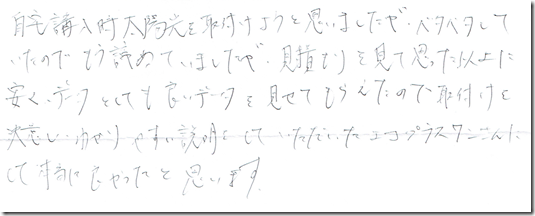 自宅講入時太陽光を取付けようと思いましたが、バタバタして
いたのでもう諦めていましたが、見積もりを見て思った以上に
安く、データとしても良いデータを見せてもらえたので取付けを
決意し、わかりやすい説明をしていただいたエコプラスタンさんに
して本当に良かったと思います。